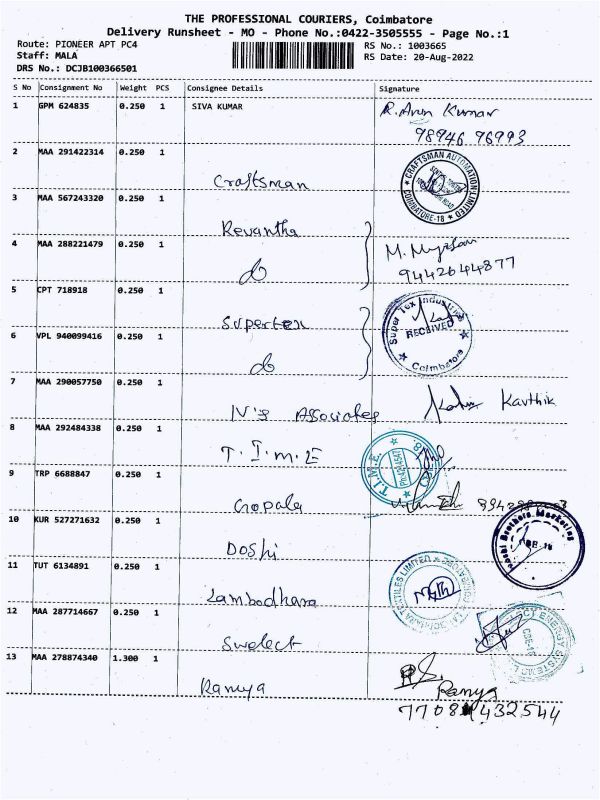 THE PROFESSIONAL COURIERS, Coimbatore
Delivery Runsheet - MO - Phone No.:0422-3505555 - Page No.:1
Route: PIONEER APT PC4
RS No.: 1003665
Staff: MALA
RS Date: 20-Aug-2022
DRS No.: DCJB100366501
S No Consignment No Weight PCS Consignee Details Signature
1 GPM 624835 0.250 1 SIVA KUMAR R. Arun Kumar
98946 96993
2 MAA 291422314 0.250 1
Craftsman CRAFTSMAN AUTOMATION LIMITED COIMBATORE-18
3 MAA 567243320 0.250 1
Revantha
4 MAA 288221479 0.250 1
do M.
9442644877
5 CPT 718918 0.250 1
Supertex Super Tex Industries RECEIVED Coimbatore
6 VPL 940099416 0.250 1
do
7 MAA 290057750 0.250 1
IV's Associates Karthik
8 MAA 292484338 0.250 1
T.I.M.E T.I.M.E.
9 TRP 6688847 0.250 1
Gopala
10 KUR 527271632 0.250 1
Doshi Brothers Marketing
11 TUT 6134891 0.250 1
Lambodhara TEXTILES LIMITED
12 MAA 287714667 0.250 1
Swelect ENERGY SYSTEMS
13 MAA 278874340 1.300 1
Ramya Ramya